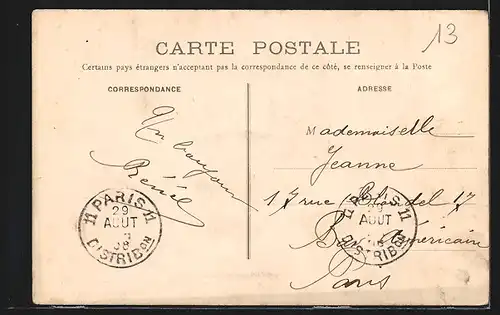 13
CARTE POSTALE
Certains pays étrangers n'acceptant pas la correspondance de ce côté, se renseigner à la Poste
CORRESPONDANCE
Un bonjour
Renée
PARIS
11 11
29
AOUT
08
DISTRIBON
ADRESSE
Mademoiselle
Jeanne
17 rue del 17
Américain
Paris
PARIS
11 11
29
AOUT
08
DISTRIBON